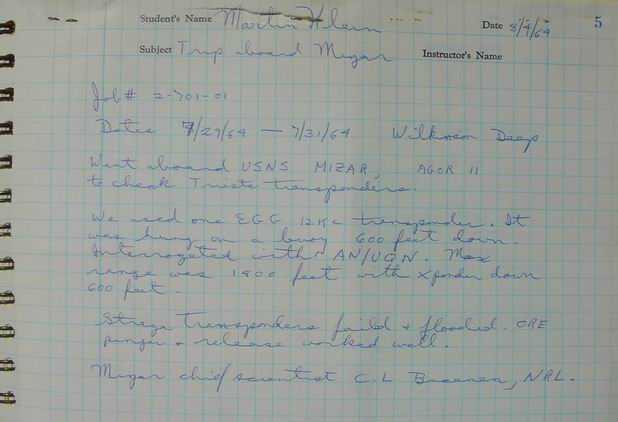 Student's Name Martin Klein Date 8/4/64 5
Subject Trip aboard Mizar Instructor's Name
Job # 2-701-01
Dates 7/29/64 — 7/31/64 Wilkinson Deep
Went aboard USNS MIZAR, AGOR 11
to check Trieste transponders.
We used one EGG 12Kc transponder. It
was hung on a buoy 600 feet down.
Interrogated with AN/UQN. Max
range was 1800 feet with xponder down
600 feet.
Straza transponders faild + flooded. ORE
pinger + release worked well.
Mizar chief scientist C.L. Buchanan, NRL.